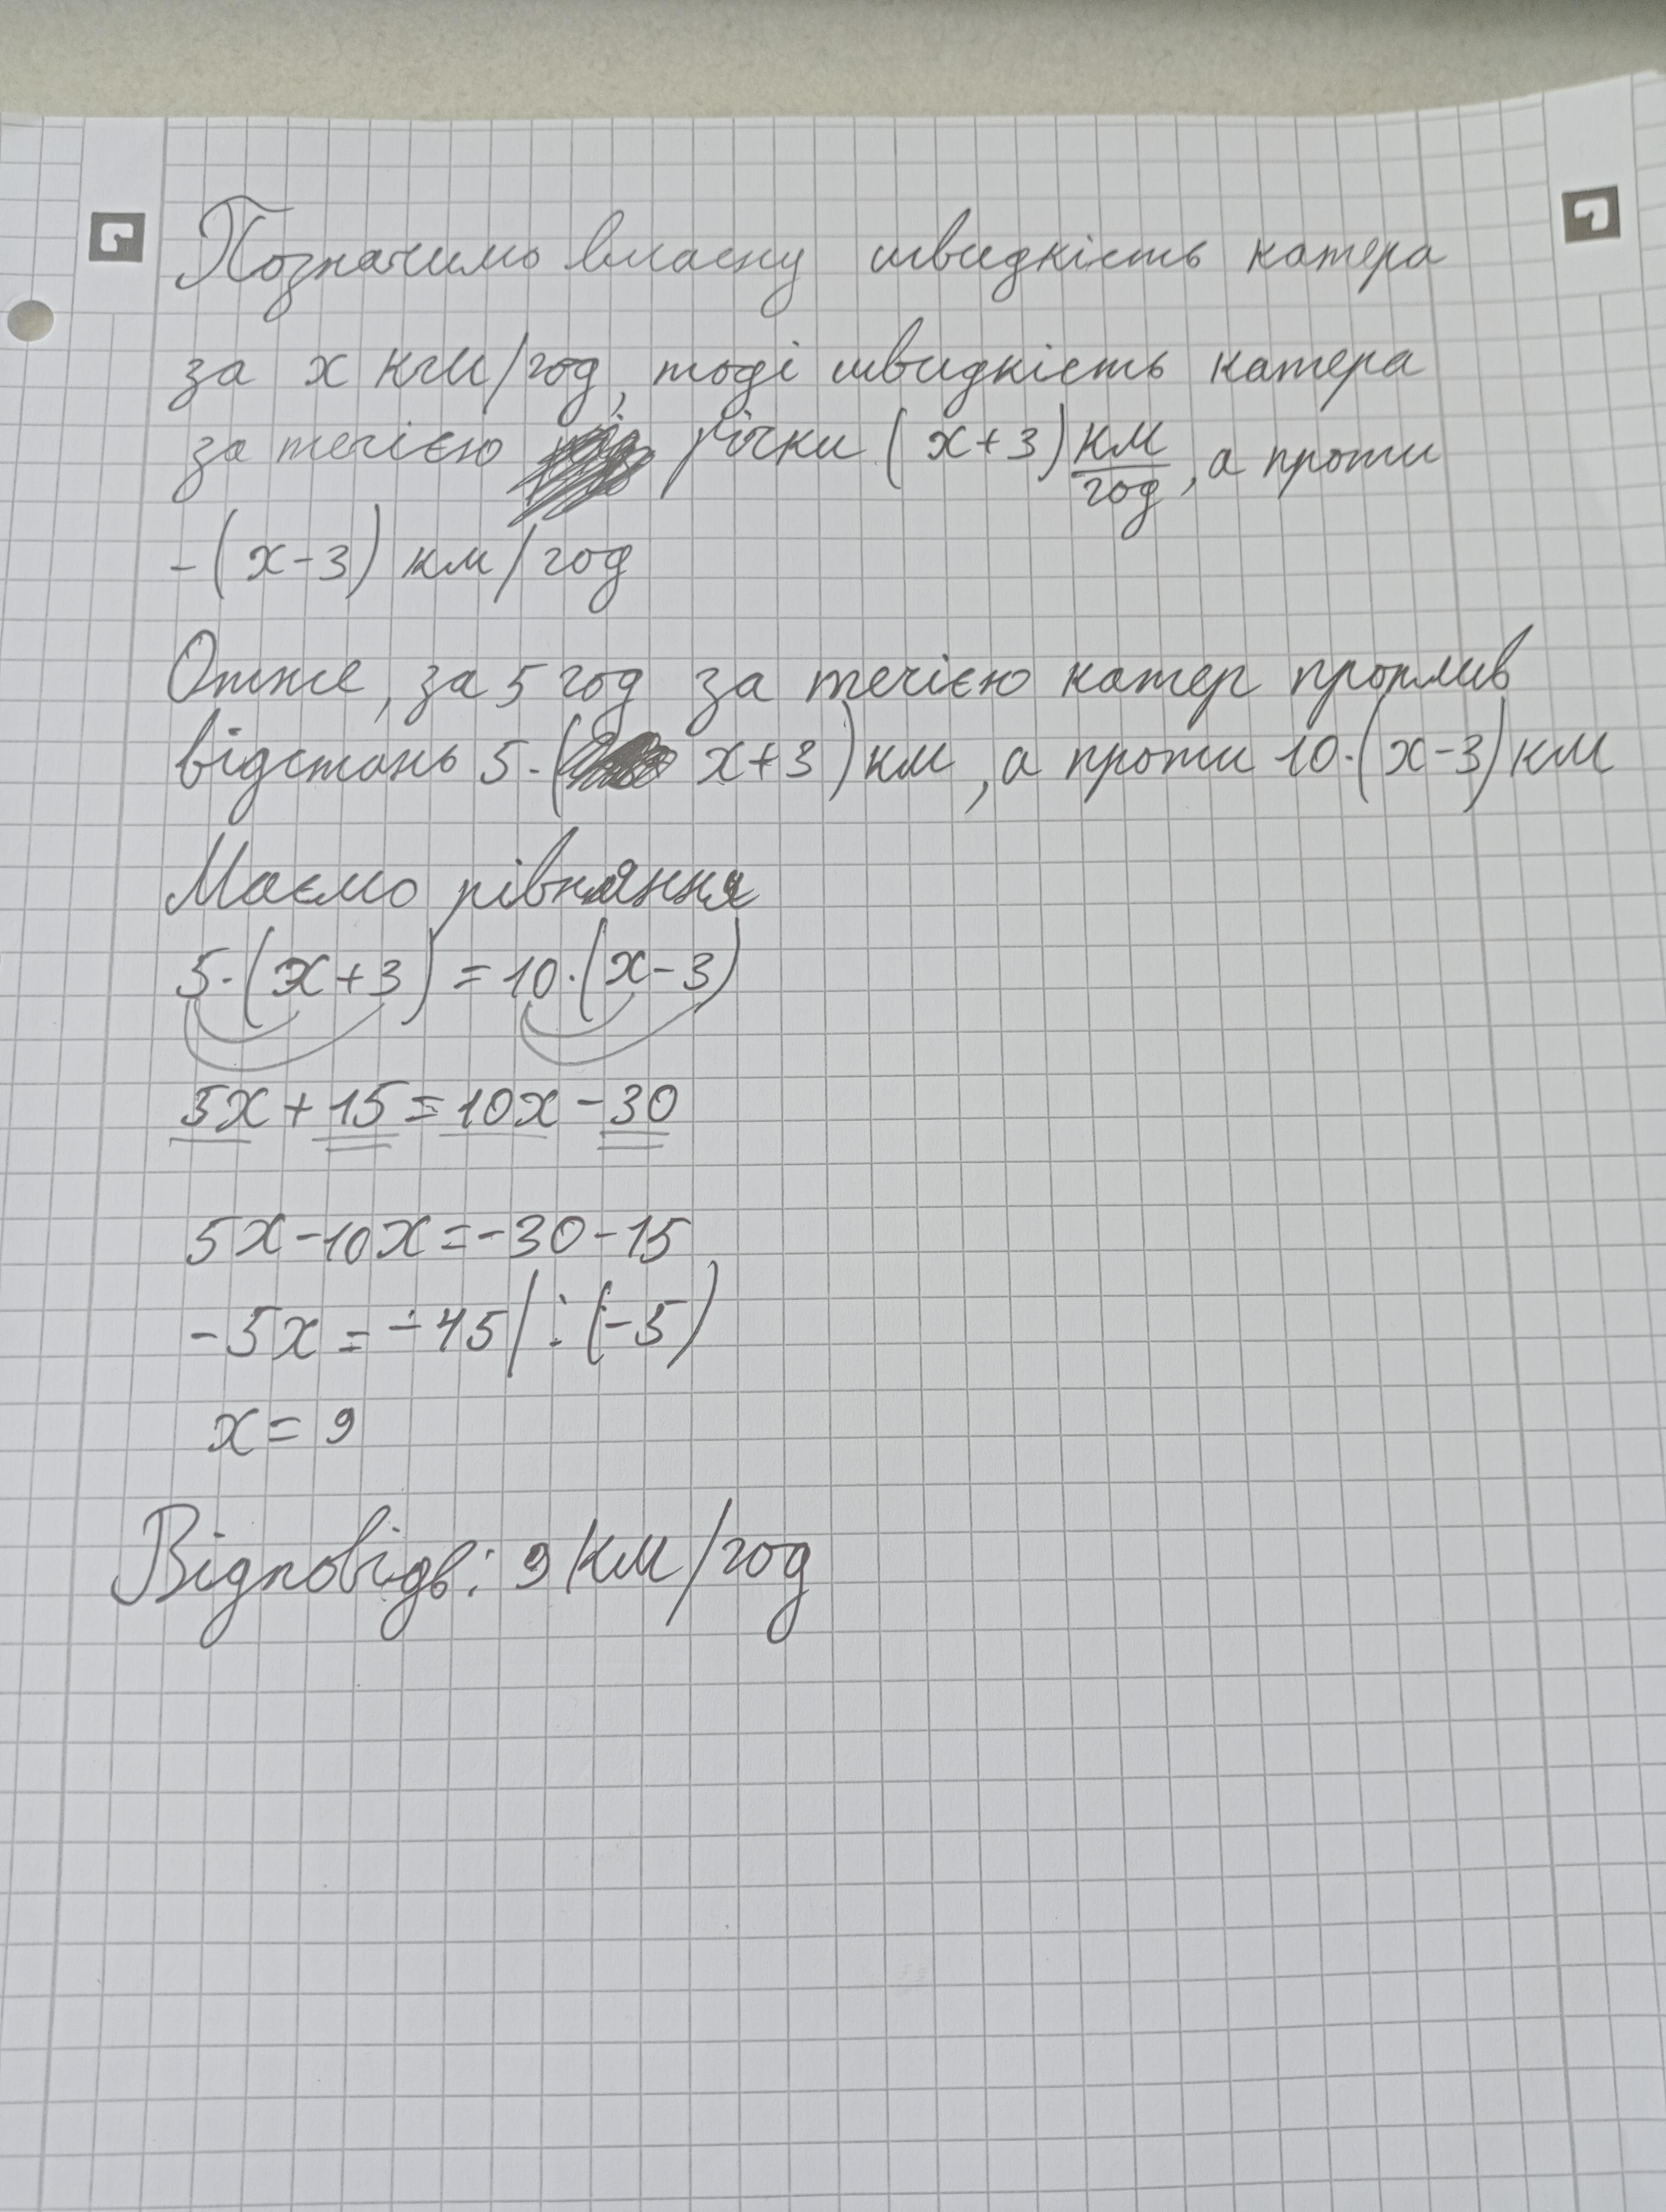 Позначимо власну швидкість катера
за x км/год, тоді швидкість катера
за течією річки (x+3) км/год, а проти
-(x-3) км/год
Отже, за 5 год за течією катер проплив
відстань 5·(x+3) км, а проти 10·(x-3) км
Маємо рівняння
5·(x+3)=10·(x-3)
5x+15=10x-30
5x-10x=-30-15
-5x=-45|:(-5)
x=9
Відповідь: 9 км/год